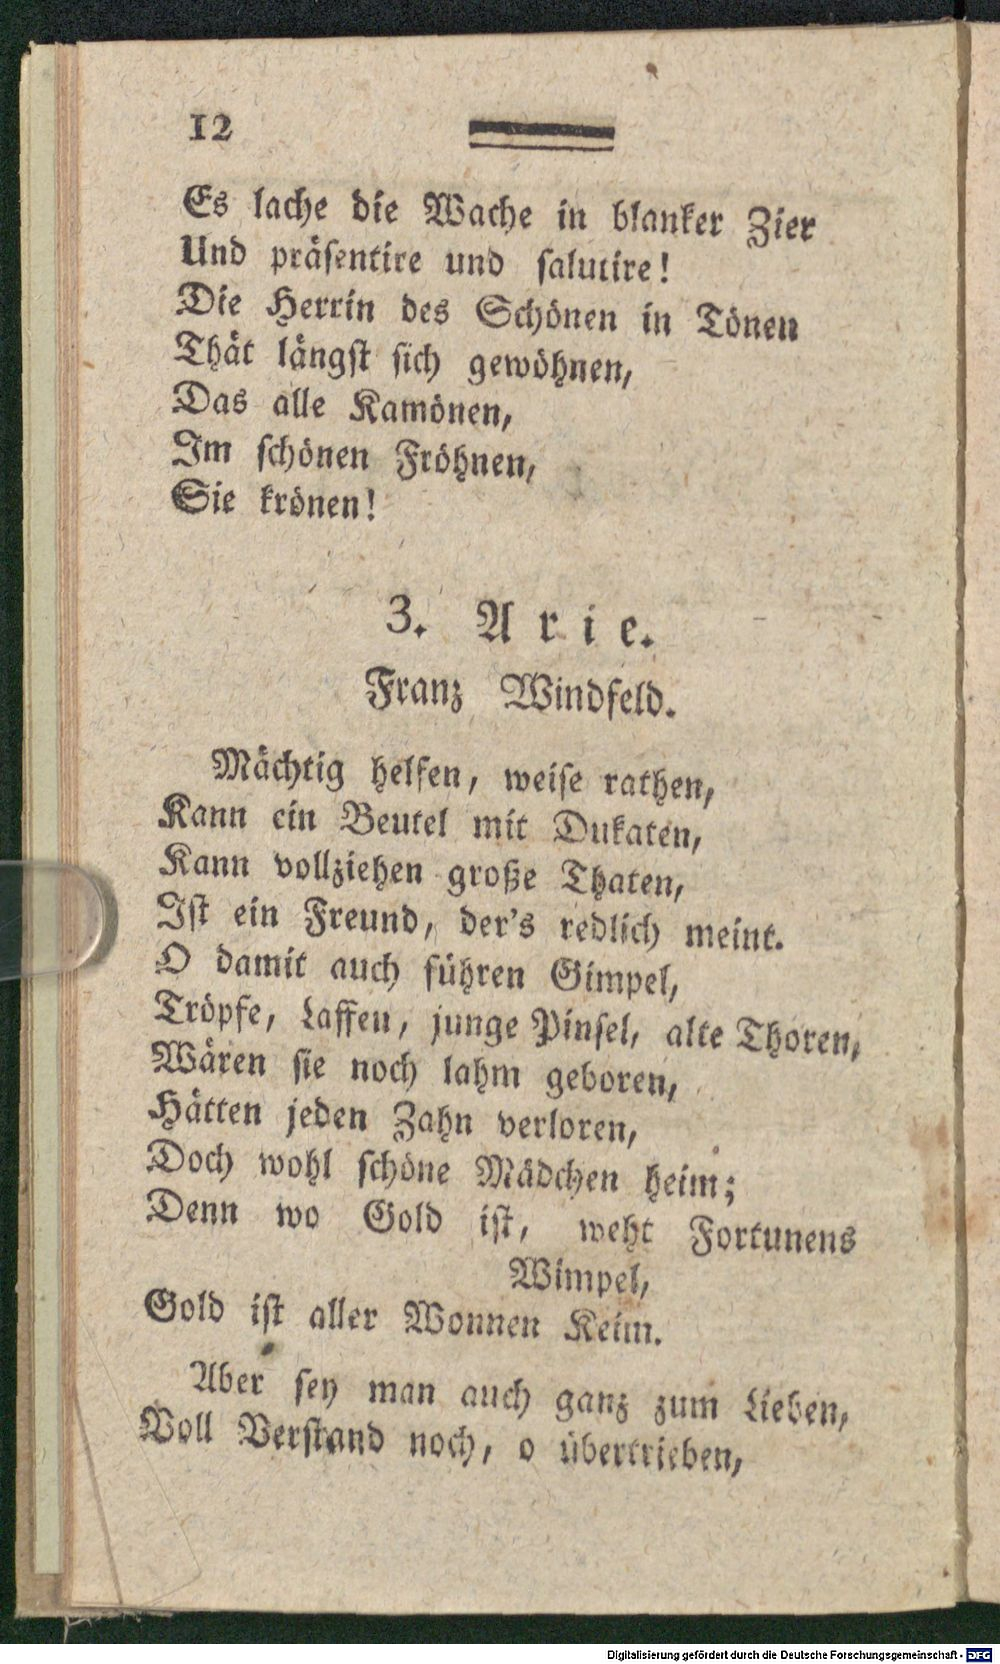 12
Es lache die Wache in blanker Zier
Und präsentire und salutire!
Die Herrin des Schönen in Tönen
Thät längst sich gewöhnen,
Das alle Kamönen,
Im schönen Fröhnen,
Sie krönen!
3. Arie.
Franz Windfeld.
Mächtig helfen, weise rathen,
Kann ein Beutel mit Dukaten,
Kann vollziehen große Thaten,
Ist ein Freund, der's redlich meint.
O damit auch führen Gimpel,
Tröpfe, Laffen, junge Pinsel, alte Thoren,
Wären sie noch lahm geboren,
Hätten jeden Zahn verloren,
Doch wohl schöne Mädchen heim;
Denn wo Gold ist, weht Fortunens
Wimpel,
Gold ist aller Wonnen Keim.
Aber sey man auch ganz zum Lieben,
Voll Verstand noch, o übertrieben,
Digitalisierung gefördert durch die Deutsche Forschungsgemeinschaft - DFG